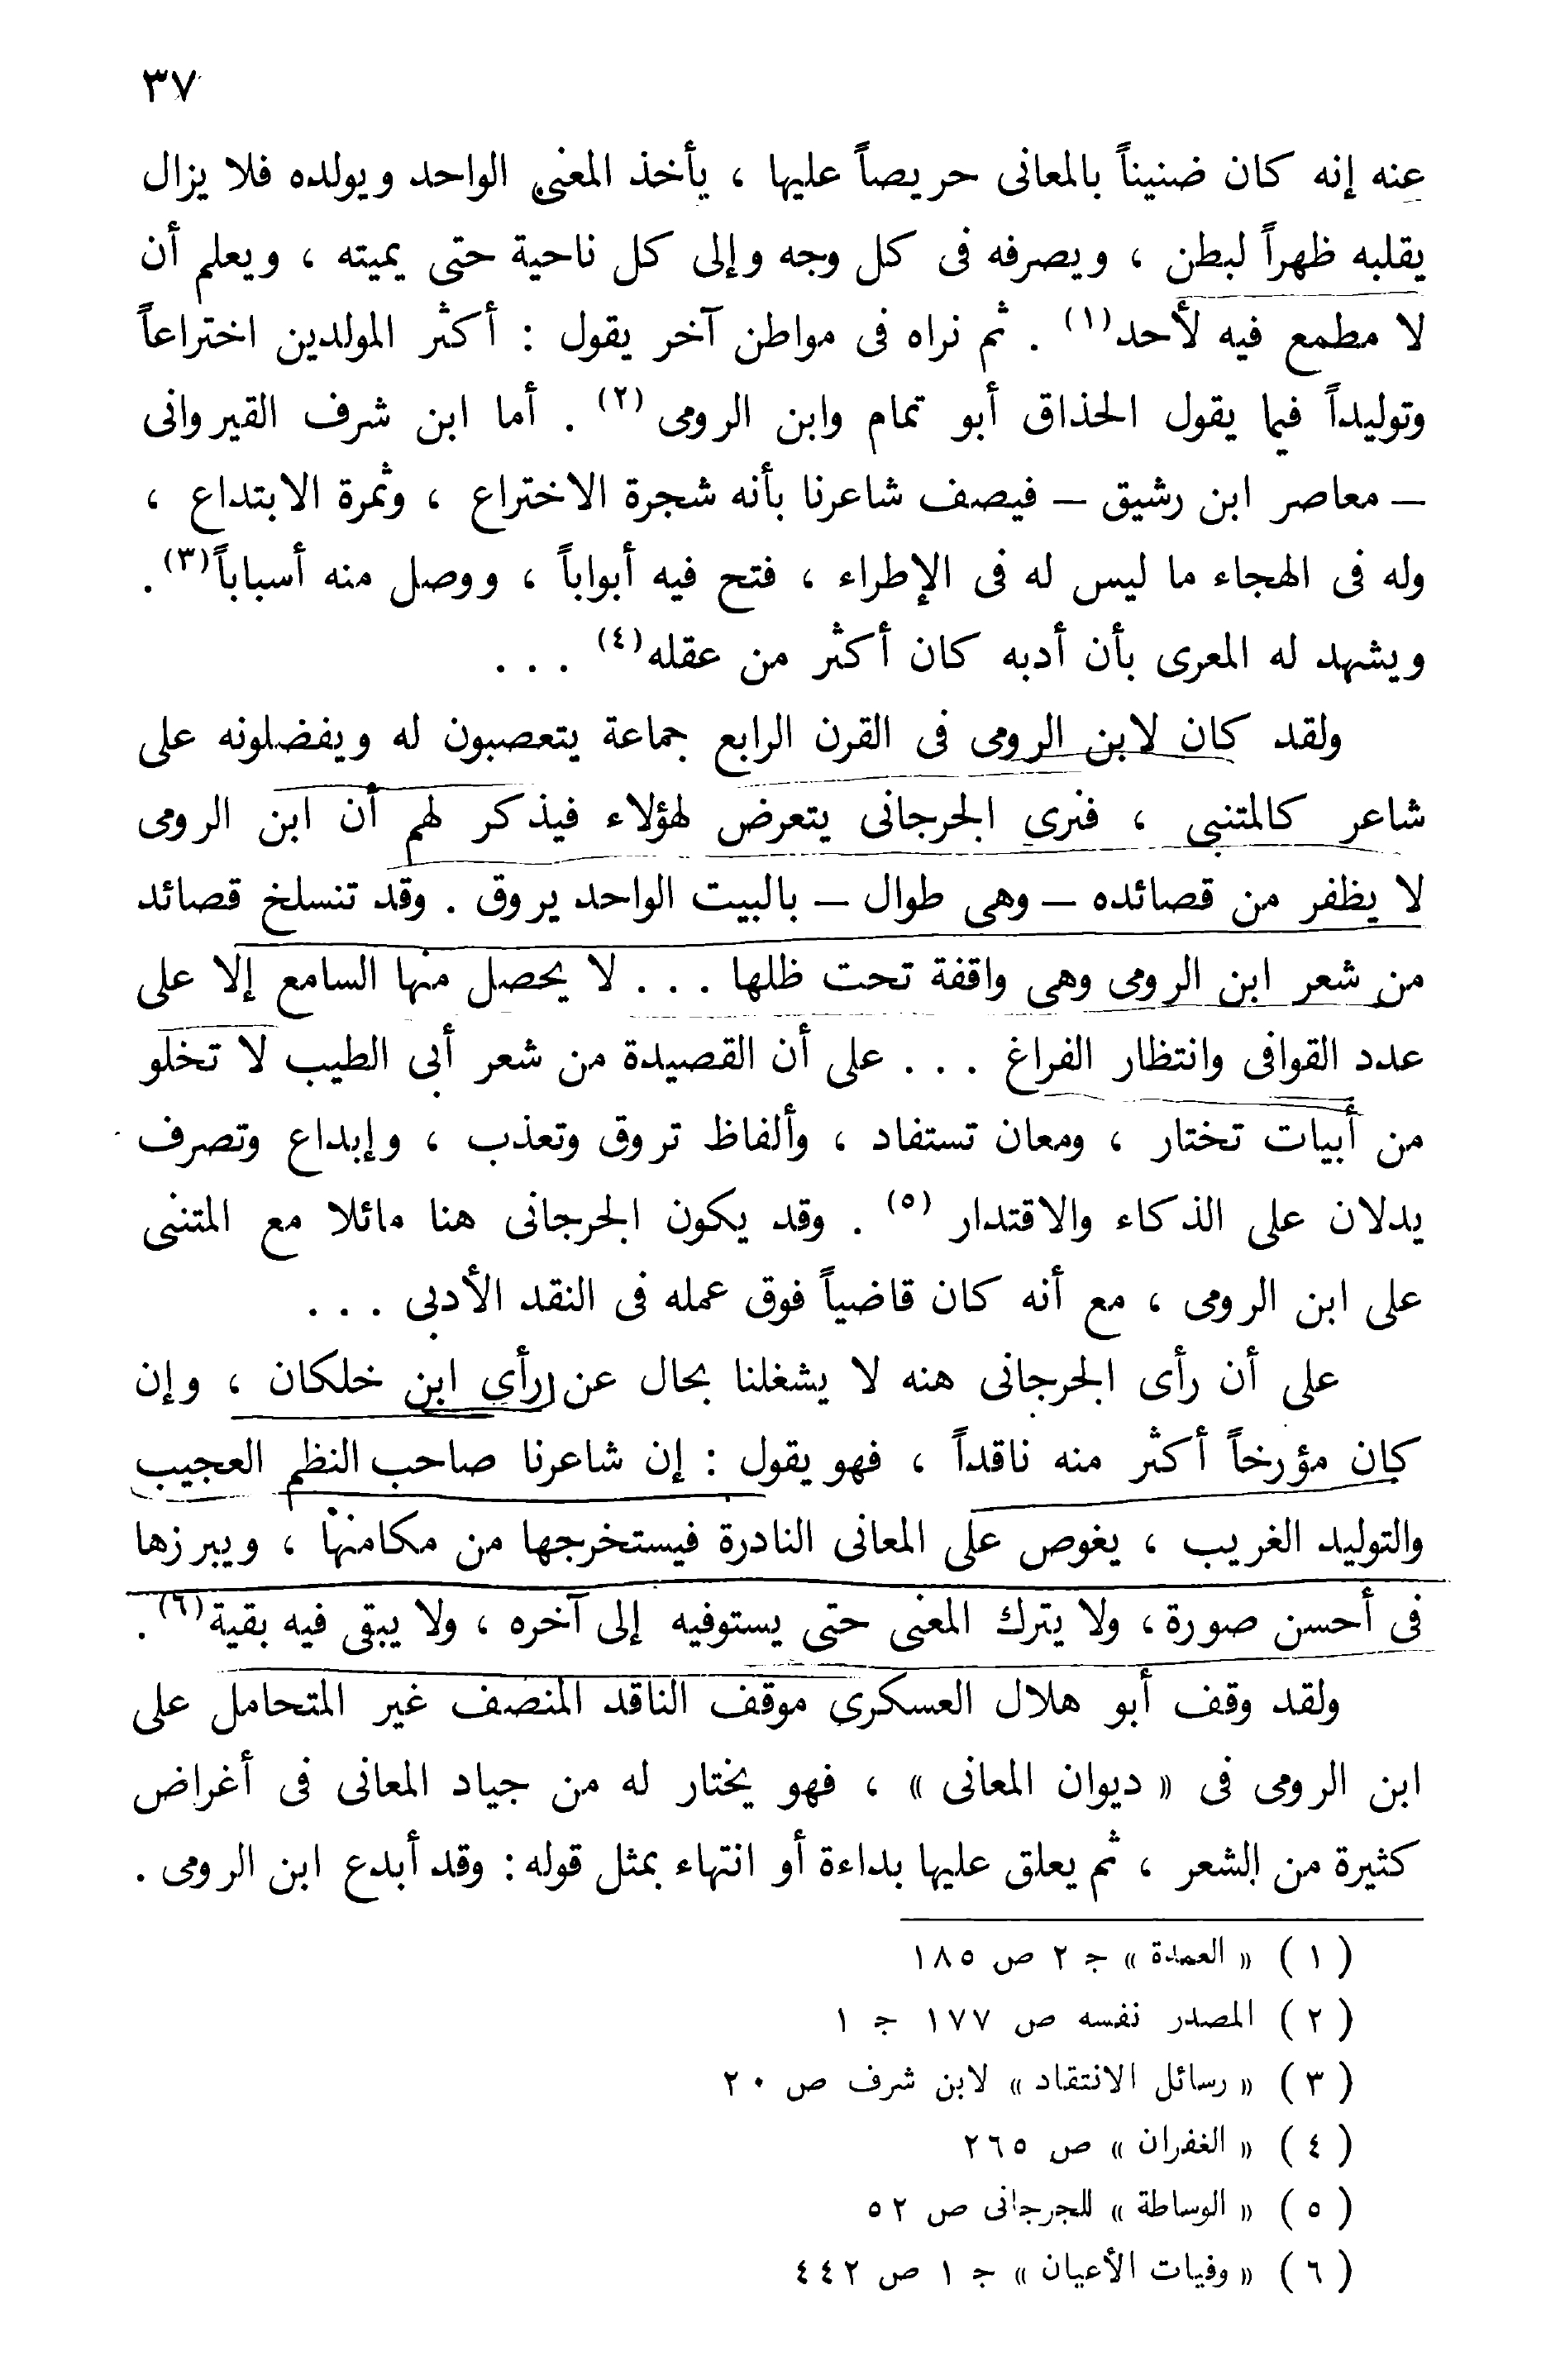 ٣٧
عنه إنه كان ضنيناً بالمعانى حريصاً عليها ، يأخذ المعنى الواحد ويولده فلا يزال
يقلبه ظهراً لبطن ، ويصرفه فى كل وجه وإلى كل ناحية حتى يميته ، ويعلم أن
لا مطمع فيه لأحد(١) . ثم نراه فى مواطن آخر يقول : أكثر المولدين اختراعاً
وتوليداً فيما يقول الحذاق أبو تمام وابن الرومى (٢) . أما ابن شرف القيروانى
— معاصر ابن رشيق — فيصف شاعرنا بأنه شجرة الاختراع ، وثمرة الابتداع ،
وله فى الهجاء ما ليس له فى الإطراء ، فتح فيه أبواباً ، ووصل منه أسباباً(٣) .
ويشهد له المعرى بأن أدبه كان أكثر من عقله(٤) . . .
ولقد كان لابن الرومى فى القرن الرابع جماعة يتعصبون له ويفضلونه على
شاعر كالمتنبى ، فنرى الجرجانى يتعرض لهؤلاء فيذكر لهم أن ابن الرومى
لا يظفر من قصائده — وهى طوال — بالبيت الواحد يروق . وقد تنسلخ قصائد
من شعر ابن الرومى وهى واقفة تحت ظلها . . . لا يحصل منها السامع إلا على
عدد القوافى وانتظار الفراغ . . . على أن القصيدة من شعر أبى الطيب لا تخلو
من أبيات تختار ، ومعان تستفاد ، وألفاظ تروق وتعذب ، وإبداع وتصرف
يدلان على الذكاء والاقتدار (٥) . وقد يكون الجرجانى هنا مائلا مع المتنبى
على ابن الرومى ، مع أنه كان قاضياً فوق عمله فى النقد الأدبى . . .
على أن رأى الجرجانى هنه لا يشغلنا بحال عن رأى ابن خلكان ، وإن
كان مؤرخاً أكثر منه ناقداً ، فهو يقول : إن شاعرنا صاحب النظم العجيب
والتوليد الغريب ، يغوص على المعانى النادرة فيستخرجها من مكامنها ، ويبرزها
فى أحسن صورة ، ولا يترك المعنى حتى يستوفيه إلى آخره ، ولا يبقى فيه بقية(٦) .
ولقد وقف أبو هلال العسكرى موقف الناقد المنصف غير المتحامل على
ابن الرومى فى « ديوان المعانى » ، فهو يختار له من جياد المعانى فى أغراض
كثيرة من الشعر ، ثم يعلق عليها بداءة أو انتهاء بمثل قوله : وقد أبدع ابن الرومى .
( ١ ) « العمدة » ج ٢ ص ١٨٥
( ٢ ) المصدر نفسه ص ١٧٧ ج ١
( ٣ ) « رسائل الانتقاد » لابن شرف ص ٢٠
( ٤ ) « الغفران » ص ٢٦٥
( ٥ ) « الوساطة » للجرجانى ص ٥٢
( ٦ ) « وفيات الأعيان » ج ١ ص ٤٤٢